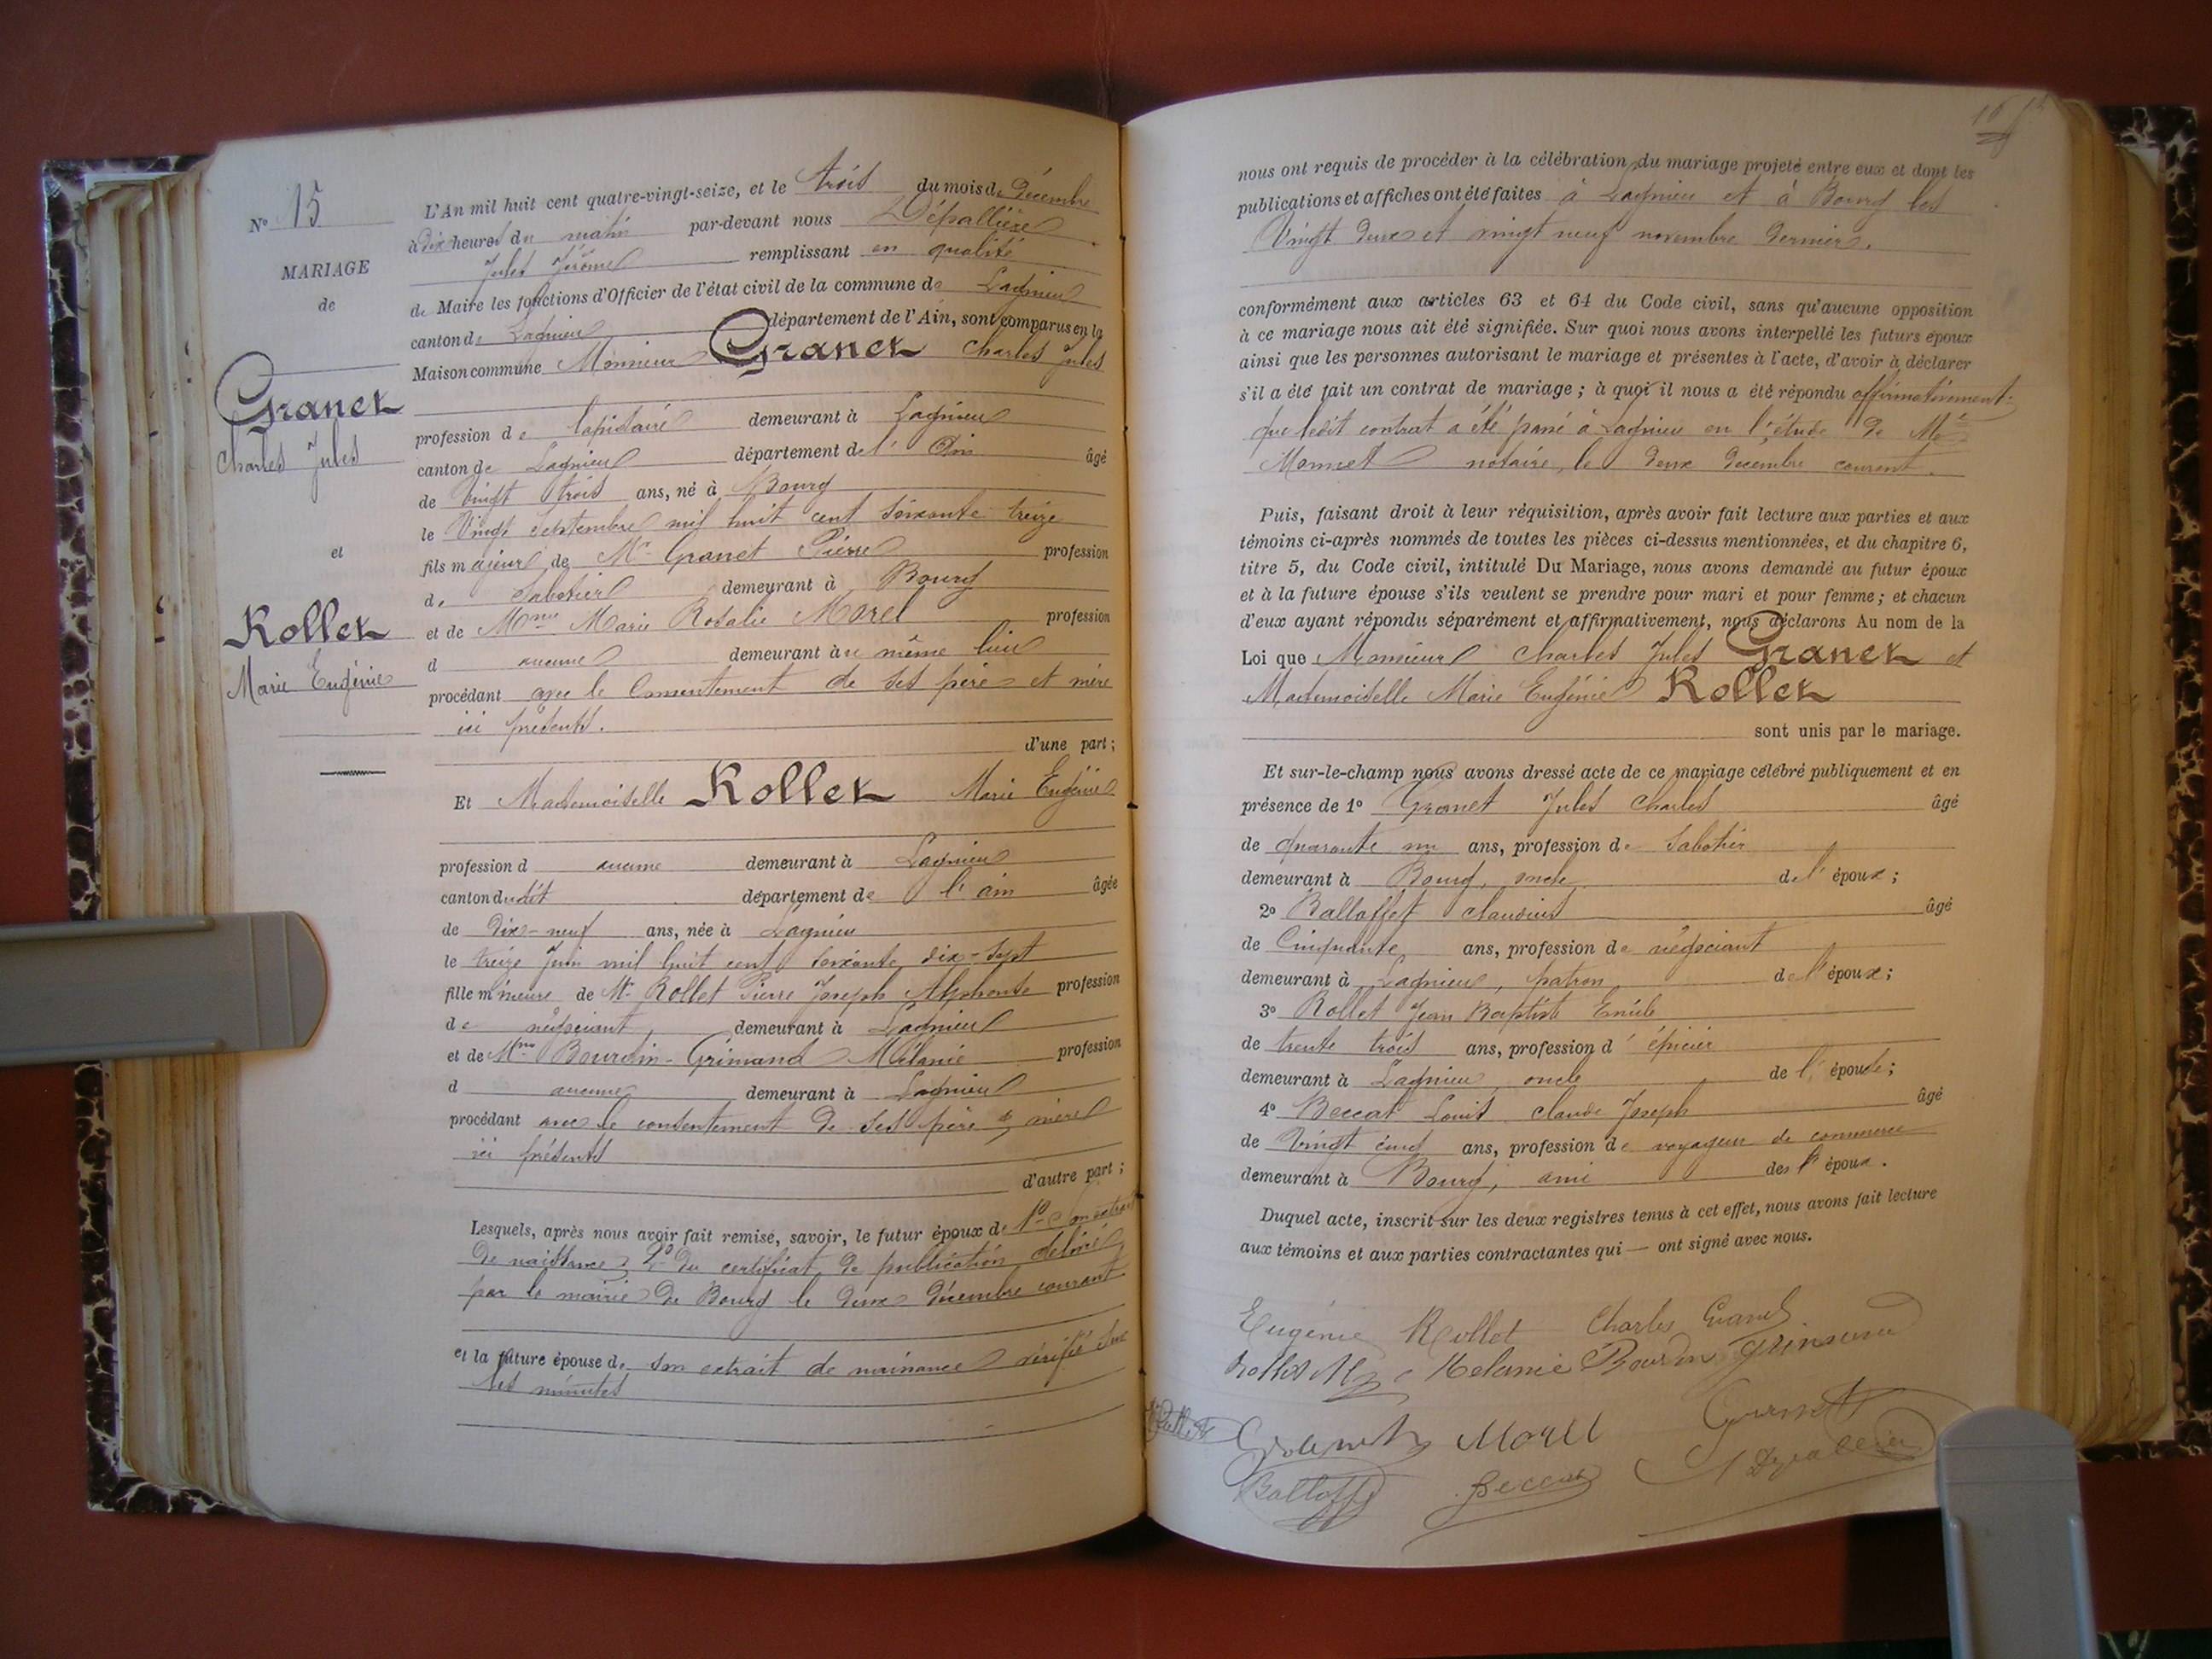 N° 15
MARIAGE
de
Granet
Charles Jules
et
Rollet
Marie Eugénie
L'An mil huit cent quatre-vingt-seize, et le trois du mois de Décembre
à dix heures du matin par-devant nous Dépallière
Jules Jérôme remplissant en qualité
de Maire les fonctions d'Officier de l'état civil de la commune de Lagnieu
canton de Lagnieu département de l'Ain, sont comparus en la
Maison commune Monsieur Granet Charles Jules
profession de lapidaire demeurant à Lagnieu
canton de Lagnieu département de l' Ain âgé
de Vingt trois ans, né à Bourg
le Vingt Septembre mil huit cent soixante treize
fils majeur de Mr Granet Pierre profession
de Sabotier demeurant à Bourg
et de Mme Marie Rosalie Morel profession
d aucune demeurant au même lieu
procédant avec le Consentement de ses père et mère
ici présents.
d'une part ;
Et Mademoiselle Rollet Marie Eugénie
profession d aucune demeurant à Lagnieu
canton dudit département de l'ain âgée
de Dix-neuf ans, née à Lagnieu
le treize Juin mil huit cent soixante dix-sept
fille mineure de Mr Rollet Pierre Joseph Alphonse profession
de négociant, demeurant à Lagnieu
et de Mme Bourdin-Grimaud Mélanie profession
d aucune demeurant à Lagnieu
procédant avec le consentement de ses père & mère
ici présents
d'autre part ;
Lesquels, après nous avoir fait remise, savoir, le futur époux de 1° Son extrait
de naissance, 2° du certificat de publication délivré
par la mairie de Bourg le deux décembre courant
et la future épouse de son extrait de naissance vérifié sur
les minutes
nous ont requis de procéder à la célébration du mariage projeté entre eux et dont les
publications et affiches ont été faites à Lagnieu et à Bourg les
Vingt deux et vingt neuf novembre dernier.
conformément aux articles 63 et 64 du Code civil, sans qu'aucune opposition
à ce mariage nous ait été signifiée. Sur quoi nous avons interpellé les futurs époux
ainsi que les personnes autorisant le mariage et présentes à l'acte, d'avoir à déclarer
s'il a été fait un contrat de mariage ; à quoi il nous a été répondu affirmativement.
que ledit contrat a été passé à Lagnieu en l'étude de Me
Monnet notaire, le deux decembre courant.
Puis, faisant droit à leur réquisition, après avoir fait lecture aux parties et aux
témoins ci-après nommés de toutes les pièces ci-dessus mentionnées, et du chapitre 6,
titre 5, du Code civil, intitulé Du Mariage, nous avons demandé au futur époux
et à la future épouse s'ils veulent se prendre pour mari et pour femme ; et chacun
d'eux ayant répondu séparément et affirmativement, nous déclarons Au nom de la
Loi que Monsieur Charles Jules Granet et
Mademoiselle Marie Eugénie Rollet
sont unis par le mariage.
Et sur-le-champ nous avons dressé acte de ce mariage célébré publiquement et en
présence de 1° Granet Jules Charles âgé
de quarante un ans, profession de Sabotier
demeurant à Bourg, oncle de l'époux ;
2° Ballaffet Claudius âgé
de Cinquante ans, profession de négociant
demeurant à Lagnieu, patron de l'époux ;
3° Rollet Jean Baptiste Emile
de trente trois ans, profession d'épicier
demeurant à Lagnieu, oncle de l'épouse ;
4° Beccat Louis Claude Joseph âgé
de Vingt cinq ans, profession de voyageur de commerce
demeurant à Bourg, ami de l'époux.
Duquel acte, inscrit sur les deux registres tenus à cet effet, nous avons fait lecture
aux témoins et aux parties contractantes qui — ont signé avec nous.
Eugénie Rollet Charles Granet
Rollet Mélanie Bourdin Grimaud
Rollet Granet Morel Granet
Ballaffet Beccat J Dépallière